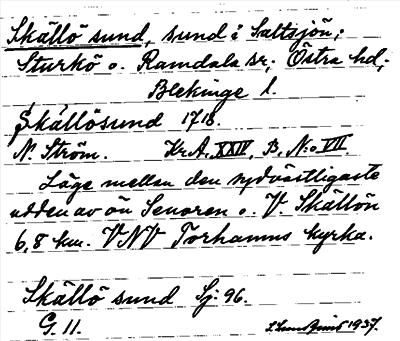 Skällö sund, sund i Saltsjön;
Sturkö o. Ramdala sr; Östra hd,
Blekinge l.
Skällösund 1718.
N. Ström. Kr.A. XXIV, B, N:o VII.
Läge mellan den sydvästligaste
udden av ön Senoren o. V. Skällön
6,8 km. VNV Torhamns kyrka.
Skällö sund Sj. 96.
G. 11. 1937.